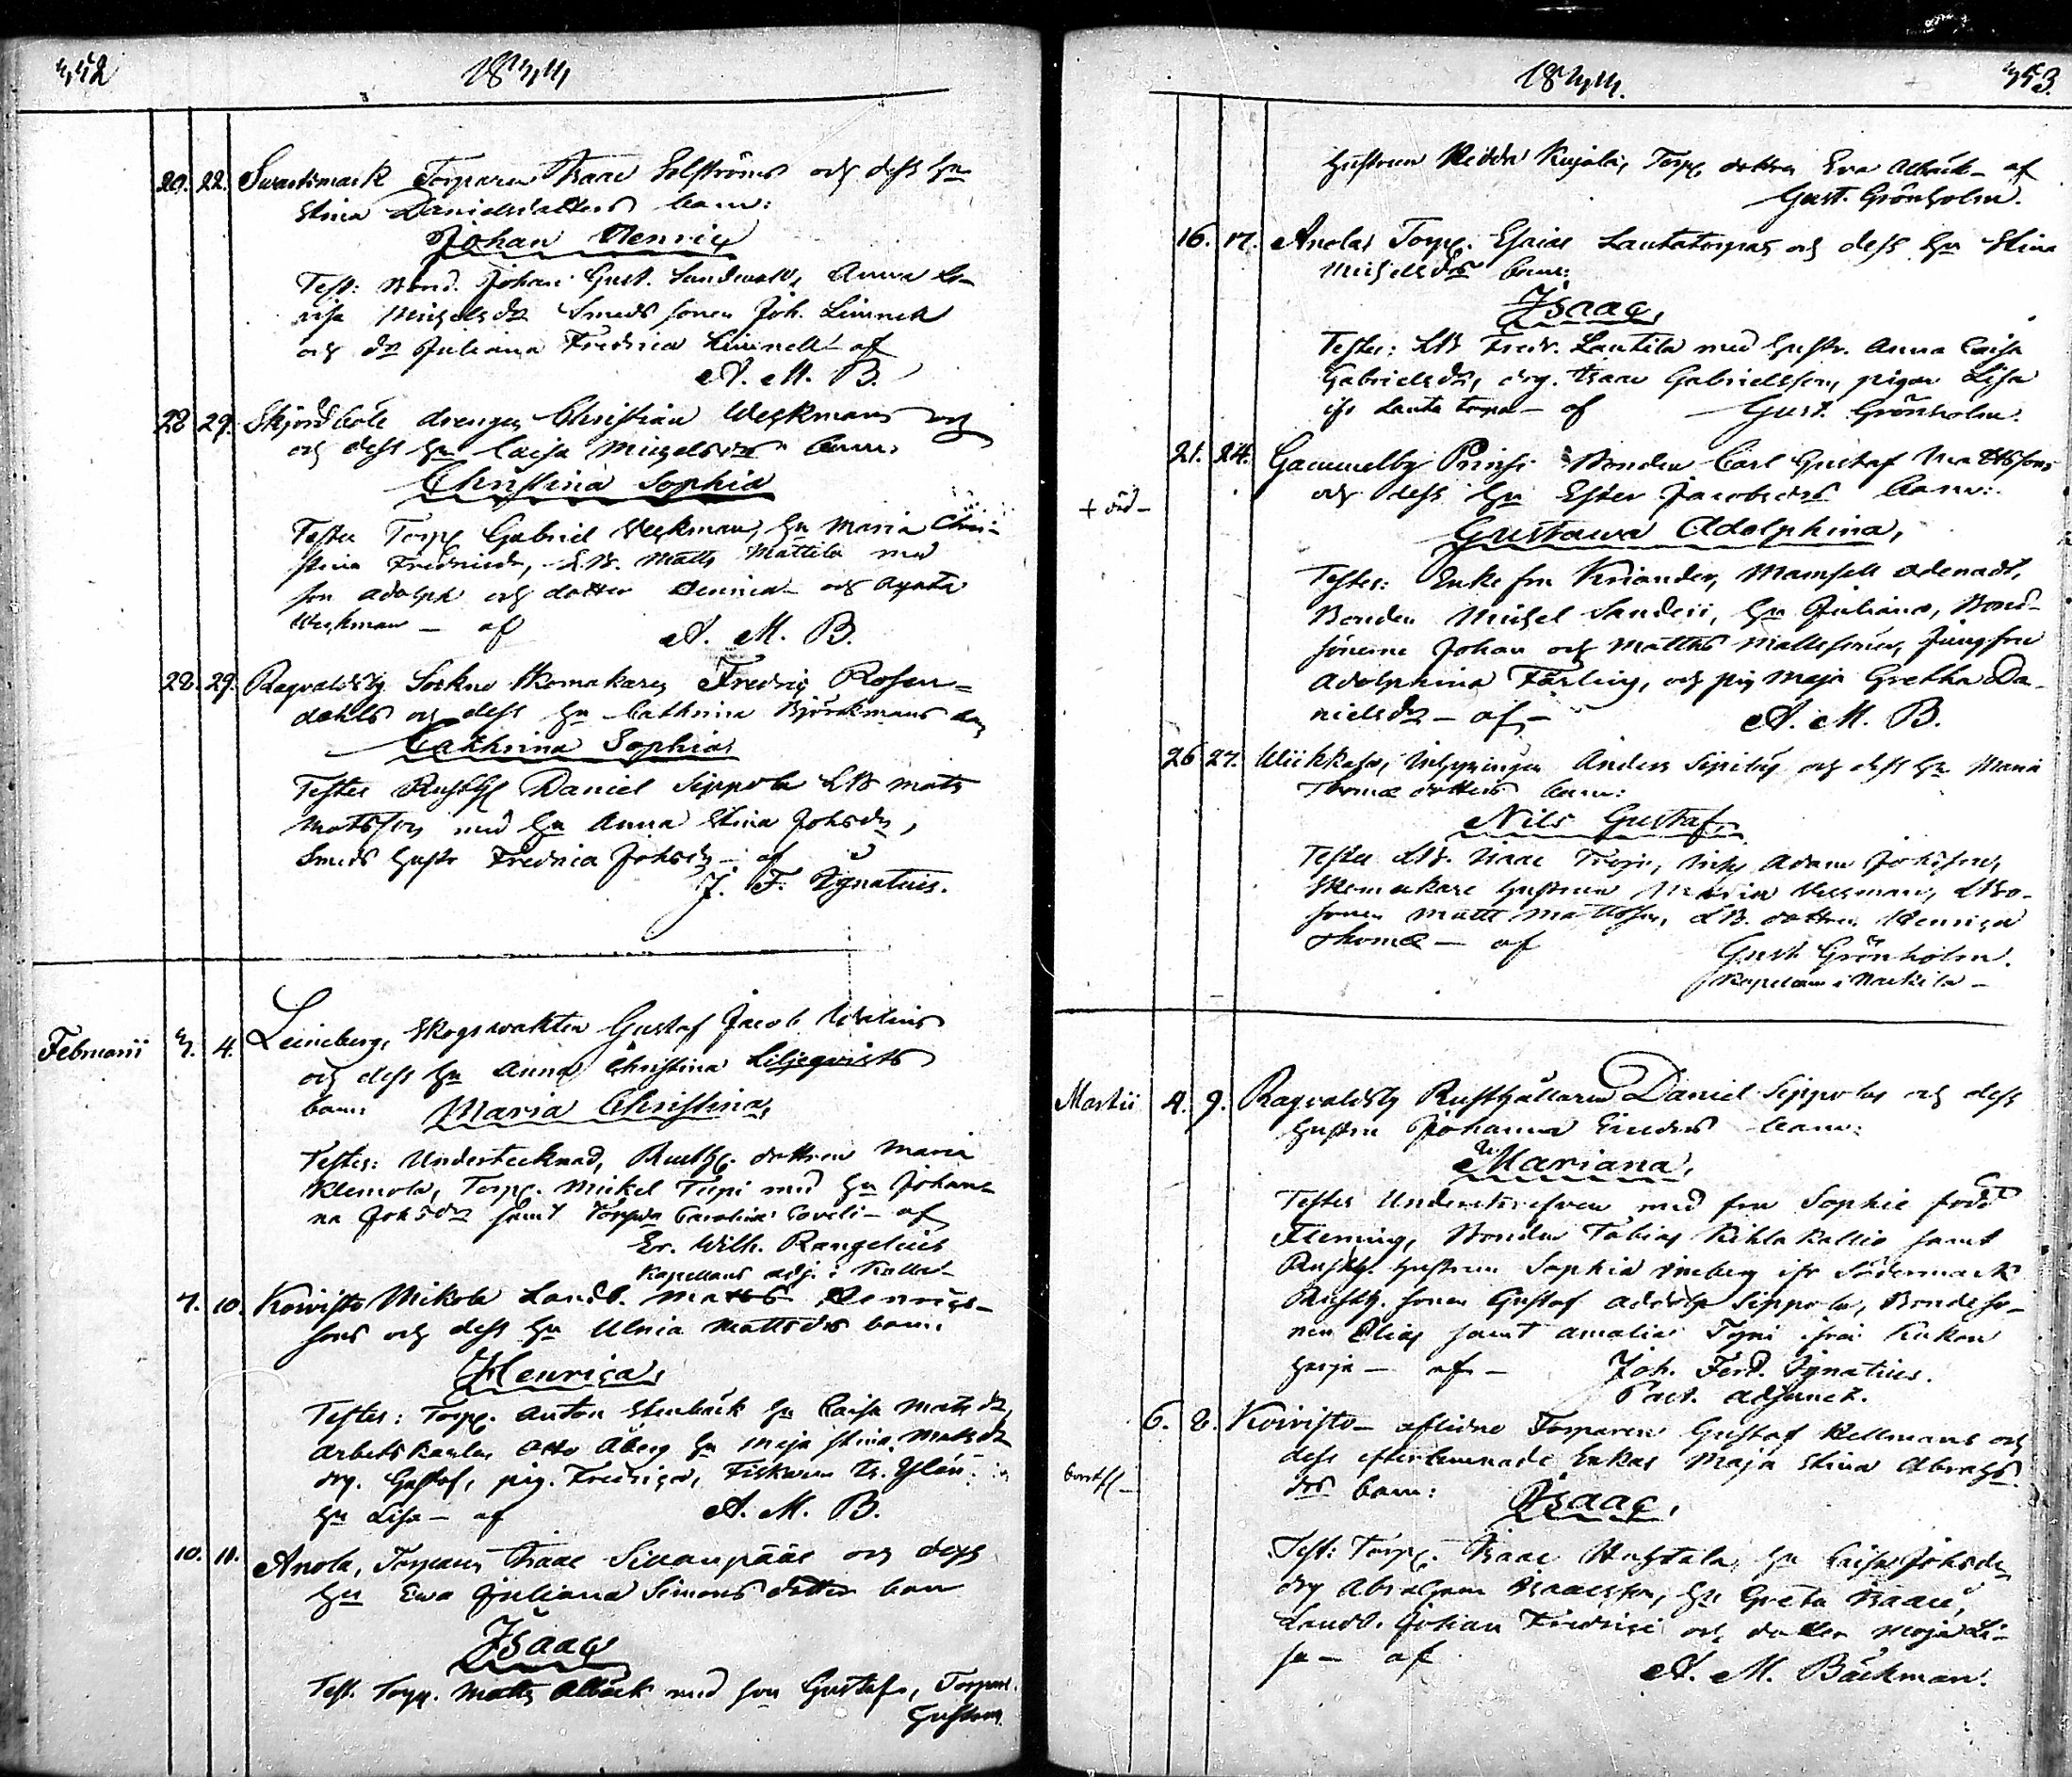 352
1844
20. 22. Svartsmark Torparen Isaac Solströms och dess hu
Stina Danielsdotters barn:
Johan Henric
Test: Bond. Johan Gust. Sandvall, Anna Lo-
visa Michelsdr Smeds sonen Joh. Linnell
och dr Juliana Fredrica Linnell af
A. M. B.
28 29. drengen Christian Weckmans och
och dess hu Caisa Michelsdrs barn.
Christina Sophia
Testes Torp. Gabriel Weckman, hu Maria Chri-
stina Fredricsdr, LB. Matts Mattila med
son Adolph och dotter Henrica och Agata
Weckman — af
A. M. B.
28. 29. Ragvaldsby Sockne Skomakaren Fredric Rosen-
dahls och dess hu Cathrina Björckmans barn
Cathrina Sophia
Testes Rusth Daniel Seppola LB Mats
Matsson med hu Anna Stina Johsdr,
Smeds hustr Fredrica Johsdr — af
J. F. Ignatius.
Februarii 3. 4. Leineberg, Skogsvakten Gustaf Jacob
och dess hu Anna Christina Liljeqvists
barn: Maria Christina,
Testes: Undertecknad, Rusth. dottren Maria
Klemola, Torp. Mickel Tupi med hu Johan-
na Johsdr samt Carolina — af
Er. Wilh. Rangelius
Kapellans adj. i
7. 10. Koivisto Mikola Landb. Matts Henrics-
sons och dess hu Ulrica Mattsdrs barn.
Henrica,
Testes: Torp. Anton Stenbäck hu Caisa Matsdr,
Arbetskarlen Otto Åberg hu Maja Stina Matsdr
drg. Gustaf, pig. Fredrica,
hu Lisa — af
A. M. B.
10. 11. Anola, Torparen Isaac och dess
hu Eva Juliana Simonsdotters barn
Isaac
Test. Torp. Matts Albäck med son Gustaf, Torpar-
hustrun
1844.
353.
hustrun Hedda Kujala, Torp. dottren Eva Albäck — af
Gust. Grönholm.
16. 17. Anolas Torp. Esaias Lautatorpas och dess hu Stina
Michelsdrs barn:
Isaac,
Testes: LB Fredr. Lautila med hustr. Anna Caisa
Gabrielsdr, drg. Isaac Gabrielsson, pigan Lisa
ifr Lautatorpa — af
Gust. Grönholm.
+ död —
21. 24. Gammelby Prinsi Bonden Carl Gustaf Mattssons
och dess hu Ester Jacobsdrs barn:
Gustawa Adolphina,
Testes: Enkefru Kriander, Mamsell
Bonden Michel Sanderi, hu Juliana, Bond-
sönerne Johan och Matths Mattssoner, Jungfru
Adolphina Färling, och pig Maja Gretha Da-
nielsdr — af —
A. M. B.
26 27. Inhysingen Anders och dess hu Maria
Thomæ dotters barn:
Nils Gustaf
Testes LB. Isaac Inhy Adam Johsson,
Skomakare hustrun Maria Weckman, LBo-
sonen Matts Mattsson, LB. dottren Henrica
Thomæ — af
Gust. Grönholm.
Kapellan i Nackila —
Martii 4. 9. Ragvaldsby Rusthållaren Daniel Seppolas och dess
hustru Johanna Ericsdrs barn:
Mariana,
Testes Underskrefven med fru Sophie född
Fleming, Bonden Tobias Kihlakallio samt
Rusth. hustrun Sophia ifr Södermark
Rusth. sonen Gustaf Adolph Seppola, Bondeso-
nen Elias samt Amalia ifrån Kukon
harja — af —
Joh. Ferd. Ignatius.
Past. Adjunct.
6. 8. Koivisto — aflidne Torparen Gustaf Kellmans och
dess efterlemnade Enkas Maja Stina Abrahs
drs barn: Isaac,
Test: Torp. Isaac Huhtala, hu Caisa Johsdr
drg Abraham Isaacsson, hu Greta Isaacs,
Landb. Johan Fredrici och dotter Maja Li-
sa — af
A. M. Bäckman.